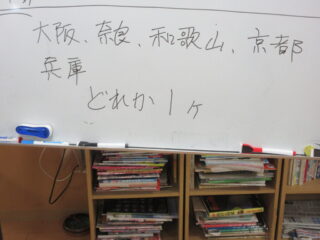 大阪、奈良、和歌山、京都
兵庫
どれか1ヶ